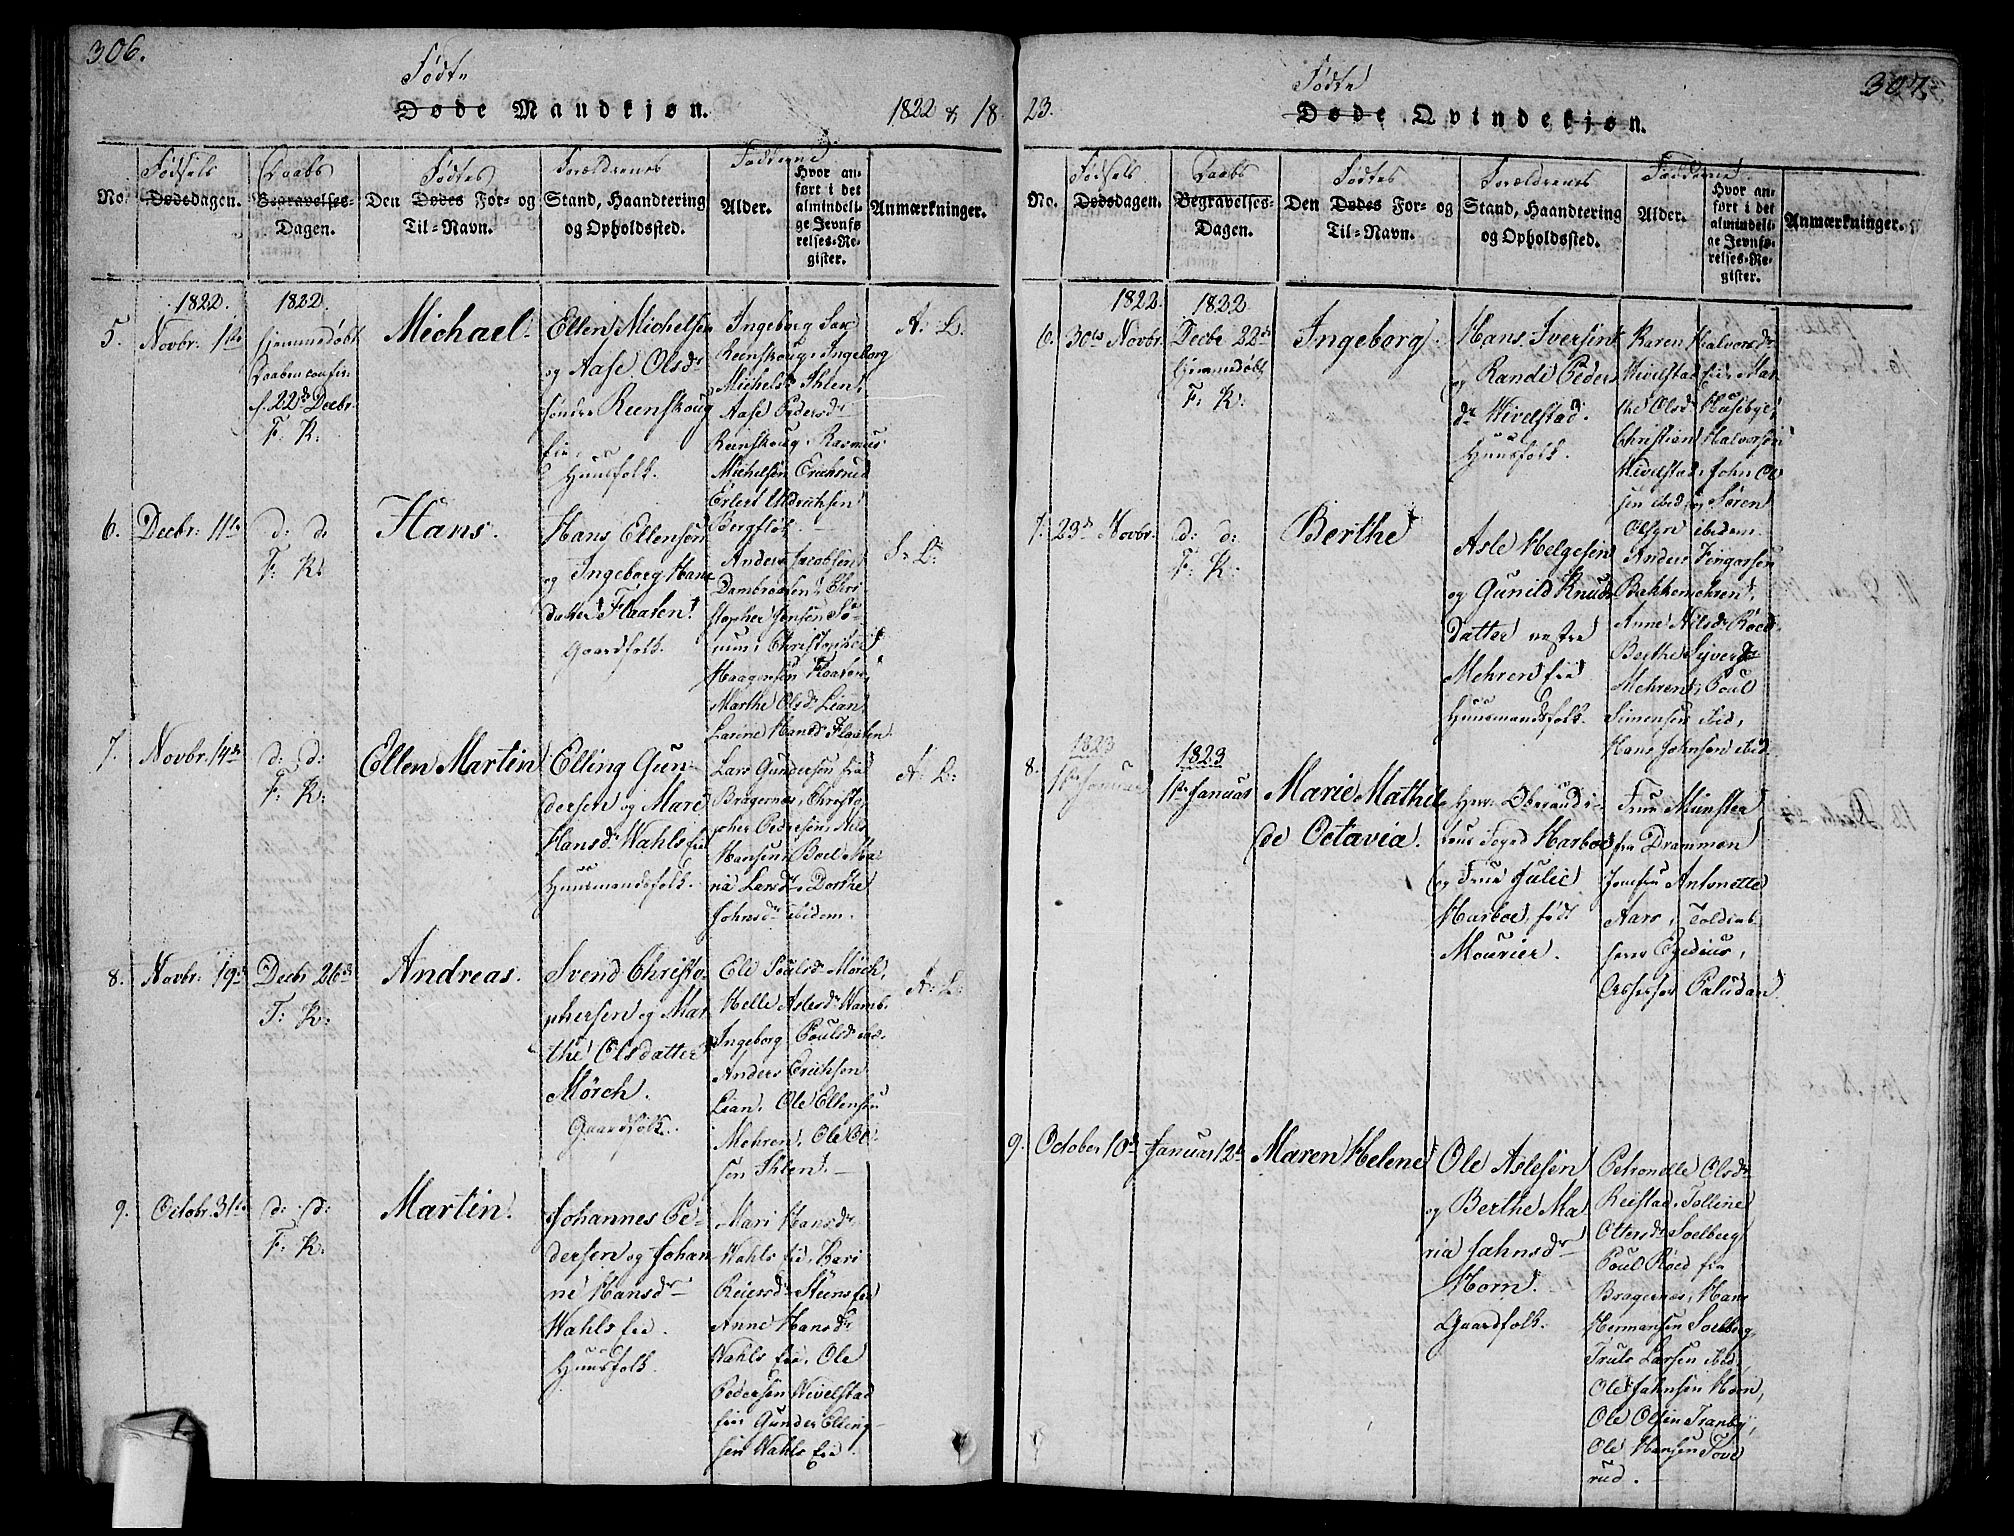 306.
Fødte
Døde Mandkjøn. 1822 & 18
Fødsels Daabs Fødtes Forældrenes Fadderne
No. Dødsdagen. Begravelses-Dagen. Den Dødes For- og Til-Navn. Stand, Haandtering og Opholdssted. Alder. Hvor anført i det almindelige Jevnførelses-Register. Anmærkninger.
1822. 1822.
5. Novbr. 1ste
hjemmedøbt
Daaben confir.
d. 22de Decbr.
F: K:
Michael.
Ellen Michelsen
og Aase Olsdr
søndre Reenskoug
eie,
Huusfolk.
Ingeborg
Reenskoug, Ingeborg
Michelsdr Ihlen,
Aase Pedersdr
Reenskoug, Rasmus
Michelsen
Erlert Uldrichsen
Bergfløt.
A: L:
6. Decbr: 11te
d: d:
F: K:
Hans.
Hans Ellensen
og Ingeborg Hans
datter Flaaten
Gaardfolk.
Anders Jacobsen
Dambraaten, Chri
stopher Jensen
Christopher
Haagensen Flaaten,
Marthe Olsdr Lean
Larine Hansdr Flaaten
S: L:
7. Novbr. 14de
d: d:
F: K:
Ellen Martin
Elling Gun-
dersen og Mari
Hansdr Wahls eie
Huusmandsfolk.
Lars Gundersen fra
Bragernæs, Christo
pher Pedersen, Nils
Hansen, Boel Ma
ria Larsdr, Dorthe
Johnsdr ibidem.
A: L:
8. Novbr. 19de
Decbr 26de
F: K:
Andreas.
Svend Christo-
phersen og Mar
the Olsdatter
Mørch.
Gaardfolk.
Ele Poulsdr Mørch,
Helle Aslesdr
Ingeborg Poulsdr
Anders Erichsen
Lian, Ole Ellensen
Mehren, Ole Ol-
sen Ihlen.
A: L:
9. Octobr. 31te
d: d:
F: K:
Martin.
Johannes Pe-
dersen og Johan
ne Hansdr
Wahls eie.
Huusfolk.
Mari Hansdr
Wahls eie, Kari
Reiersdr Steens eie
Anne Hansdr
Wahls eie, Ole
Pedersen Hivelstad
eie, Gunder Elling-
sen Wahls eie.
307.
Fødte
23. Døde Qvindekjøn.
Fødsels Daabs Fødtes Forældrenes Fadderne
No. Dødsdagen. Begravelses-Dagen. Den Dødes For- og Til-Navn. Stand, Haandtering og Opholdssted. Alder. Hvor anført i det almindelige Jevnførelses-Register. Anmærkninger.
1822. 1822
6. 30te Novbr.
Decbr 22de
hjemmedøbt
F: K:
Ingeborg.
Hans Iversen
og Randi Peders
dr Hivelstad.
Huusfolk.
Karen Halvorsdr
Hivelstad eie, Mar
the Olsdr Huseby,
Christian Halvorsen
Hivelstad, John Ol
sen ibid og Søren
Olsen ibidem.
7. 23de Novbr.
d: d:
F: K:
Berthe
Asle Helgesen
og Gunild Knuds
datter nestre
Mehren eie
Huusmandsfolk.
Anders Fingarsen
Bakkemehren,
Anne Nilsdr Røed
Berthe Syversdr
Mehren, Poul
Simensen ibid,
Hans Johnsen ibid.
8.
1823
1ste Januar
1823
1ste Januar
Marie Mathil
de Octavia.
Herr Oberaudi-
teur Foged Harboe
og Frue Julie
Harboe, født
Mourier.
Frue Münster
fra Drammen
Jomfru Antonette
Aars, Toldins-
Egedius,
Assessor Paludan.
9. October 10de
Januar 12te
Maren Helene
Ole Aslesen
og Berthe Ma
ria Jahnsdr
Horn.
Gaardfolk.
Petronelle Olsdr
Reistad, Tolline
Ottersdr Soelberg
Poul Røed fra
Bragernæs, Hans
Hermansen Soelberg,
Truls Larsen ibid,
Ole Jahnsen Horn,
Ole Olsen Tranby,
Ole Hansen Tove
rud.